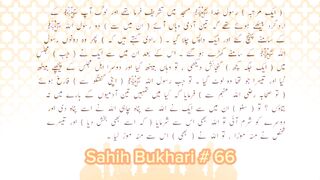 ( ایک مرتبہ ) رسول خدا ﷺ مسجد میں تشریف فرما تھے اور لوگ آپ ﷺ کے
ارد گرد بیٹھے ہوئے تھے کہ تین آدمی وہاں آئے ( ان میں سے ) دو رسول اللہ ﷺ
کے سامنے پہنچ گئے اور ایک واپس چلا گیا ( راوی کہتے ہیں کہ ) پھر وہ دونوں رسول
اللہ ﷺ کے سامنے کھڑے ہو گئے ۔ اس کے بعد ان میں سے ایک نے ( جب ) مجلس
میں ( ایک جگہ کچھ ) گنجائش دیکھی ، تو وہاں بیٹھ گیا اور دوسرا اہل مجلس کے پیچھے بیٹھ
گیا اور تیسرا جو تھا وہ لوٹ گیا ۔ تو جب رسول اللہ ﷺ ( اپنی گفتگو سے ) فارغ ہوئے
( تو صحابہ رضی اللہ عنہم سے ) فرمایا کہ کیا میں تمہیں تین آدمیوں کے بارے میں نہ
بتاؤں ؟ تو ( سنو ) ان میں سے ایک نے اللہ سے پناہ چاہی اللہ نے اسے پناہ دی اور
دوسرے کو شرم آئی تو اللہ بھی اس سے شرمایا ( کہ اسے بھی بخش دیا ) اور تیسرے
شخص نے منہ موڑا ، تو اللہ نے ( بھی ) اس سے منہ موڑ لیا ۔
Sahih Bukhari # 66